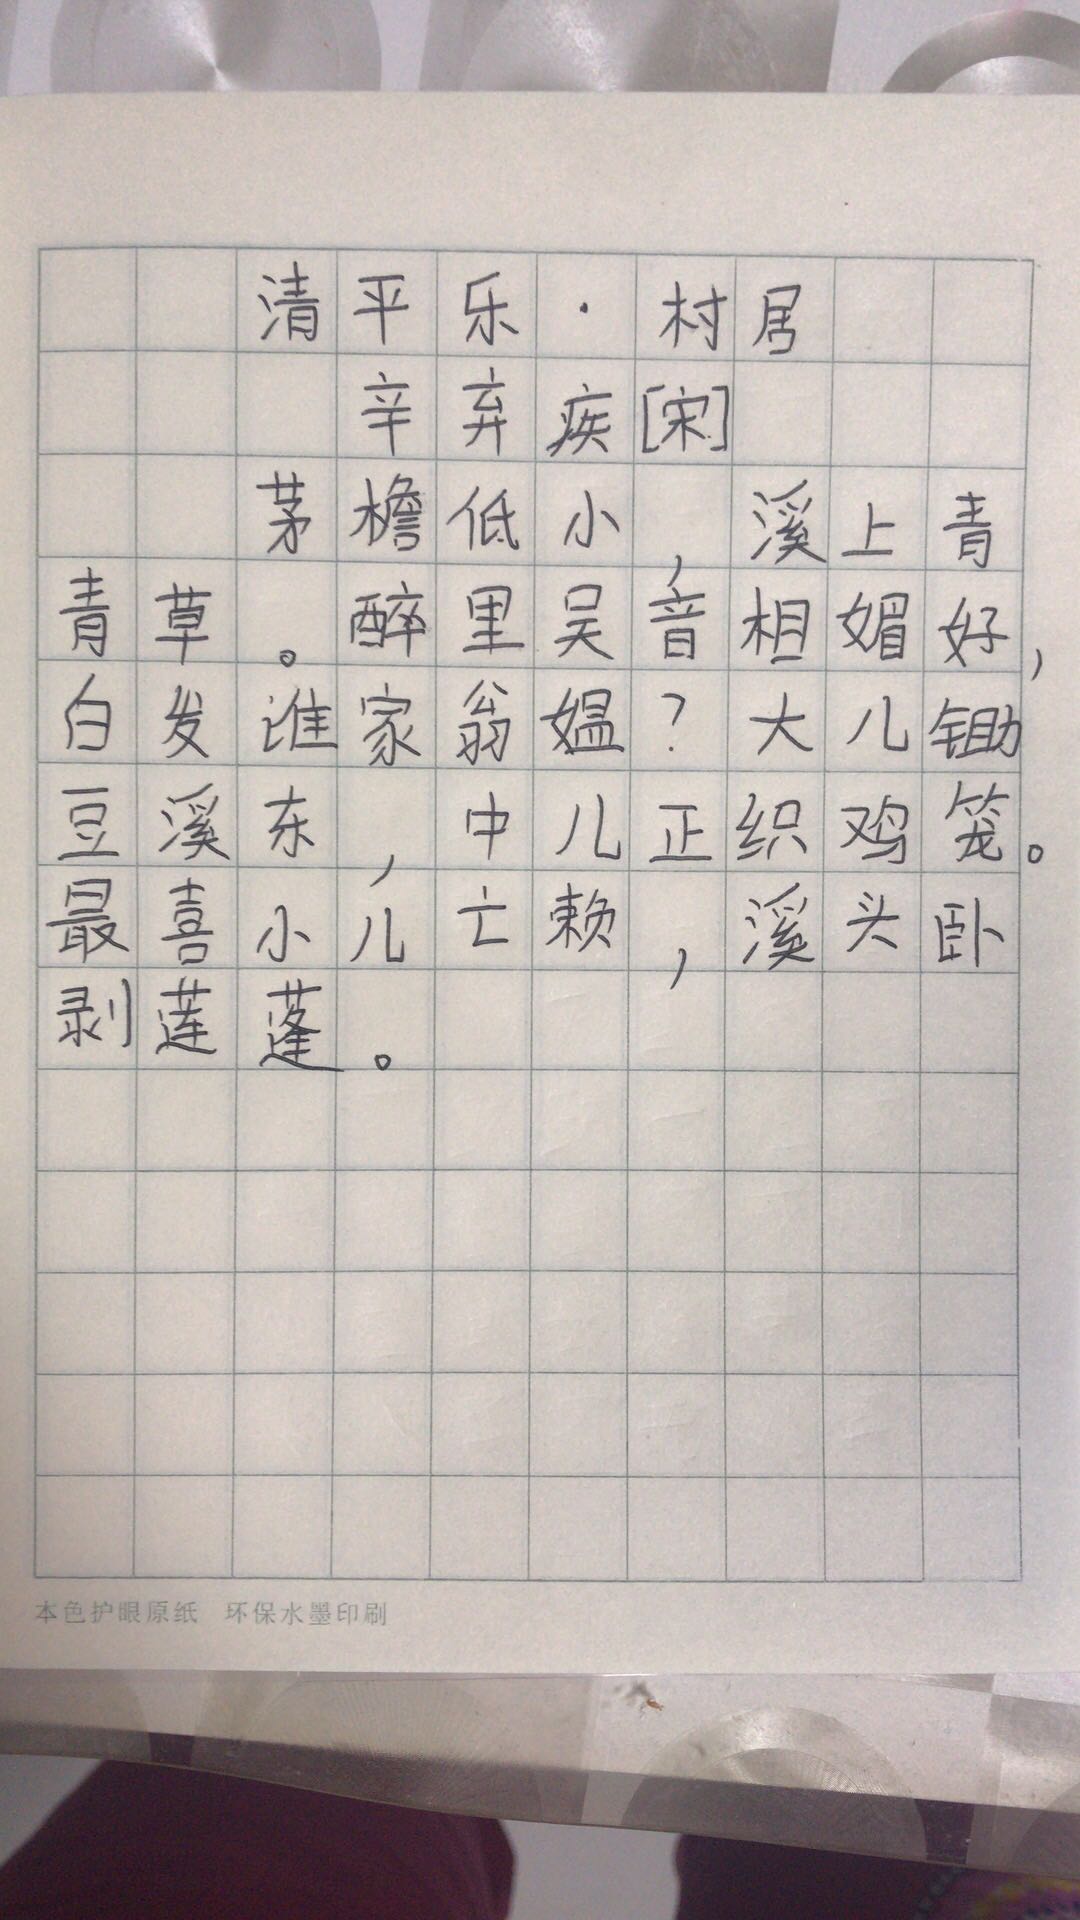 清平乐·村居
辛弃疾[宋]
茅檐低小，溪上青
青草。醉里吴音相媚好，
白发谁家翁媪？大儿锄
豆溪东，中儿正织鸡笼。
最喜小儿亡赖，溪头卧
剥莲蓬。
本色护眼原纸 环保水墨印刷